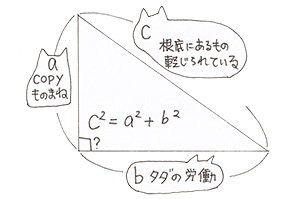 a
copy
ものまね
C
根底にあるもの
軽じられている
C² = a² + b²
?
b タダの労働